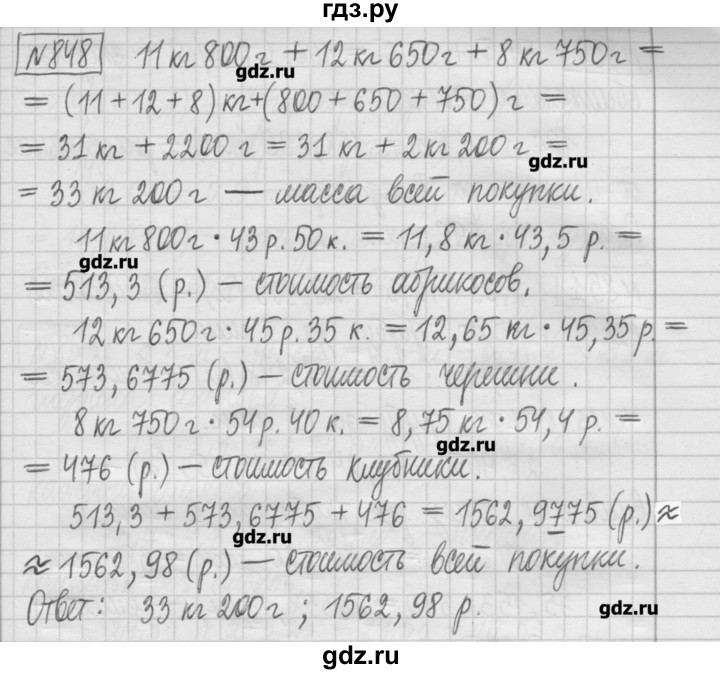 гдз.ру
№848 11 кг 800 г + 12 кг 650 г + 8 кг 750 г =
gdz.ru
= (11 + 12 + 8) кг + (800 + 650 + 750) г =
= 31 кг + 2200 г = 31 кг + 2 кг 200 г =
gdz.ru
= 33 кг 200 г — масса всей покупки.
11 кг 800 г · 43 р. 50 к. = 11,8 кг · 43,5 р. =
gdz.ru
= 513,3 (р.) — стоимость абрикосов.
12 кг 650 г · 45 р. 35 к. = 12,65 кг · 45,35 р. =
= 573,6775 (р.) — стоимость черешни.
8 кг 750 г · 54 р. 40 к. = 8,75 кг · 54,4 р. =
gdz.ru
= 476 (р.) — стоимость клубники.
513,3 + 573,6775 + 476 = 1562,9775 (р.) ≈
gdz.ru
≈ 1562,98 (р.) — стоимость всей покупки.
Ответ: 33 кг 200 г ; 1562,98 р.
gdz.ru
gdz.ru